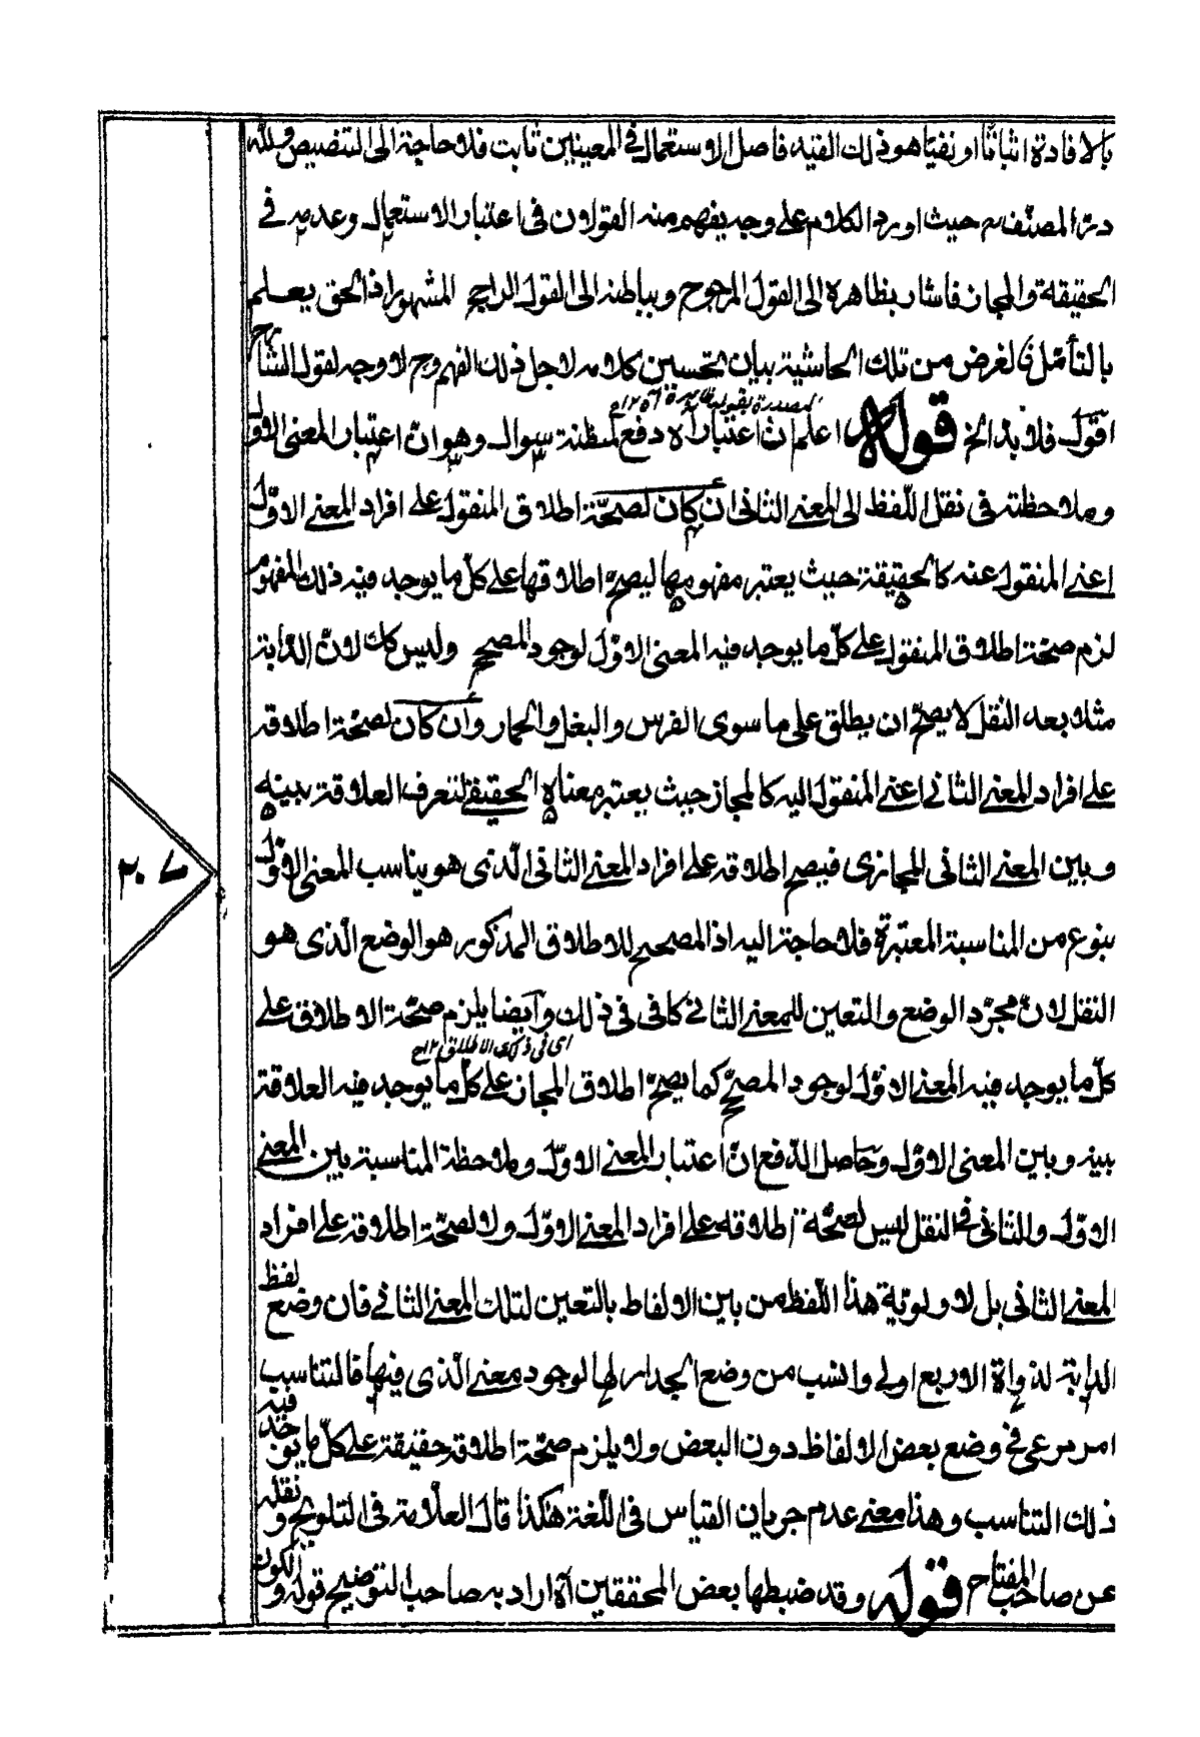 بالافادة اثباتا او نفيا هو ذلك القيد فاصل الاستعمال في المعنيين ثابت فلا حاجة الى التنصيص ولله
در المصنف حيث اورد الكلام على وجه يفهم منه القولان فى اعتبار الاستعمال وعدمه في
الحقيقة والمجاز فاشار بظاهره الى القول المرجوح وبباطنه الى القول الراجح المشهور اذ الحق يعلم
بالتأمل فالغرض من تلك الحاشية بيان تحسين كلامه لاجل ذلك الفهم وح لا وجه لقول الشارح
المصدرة بقوله فائدة آه ١٢
اقول فلا بد الخ قوله اعلم ان اعتبار آه دفع لمظنة سوال وهو ان اعتبار المعنى الاول
وملاحظته فى نقل اللفظ الى المعنے الثانى ان كان لصحّة اطلاق المنقول على افراد المعنے الاوّل
اعنے المنقول عنه كالحقيقة حيث يعتبر مفهومها ليصحّ اطلاقها على كلّ ما يوجد فيه ذلك المفهوم
لزم صحّة اطلاق المنقول على كلّ ما يوجد فيه المعنى الاوّل لوجود المصحح وليس كك لانّ الدّابة
مثلا بعد النقل لا يصحّ ان يطلق على ما سوى الفرس والبغل والحمار وان كان لصحّة اطلاقه
على افراد المعنے الثانے اعنے المنقول اليه كالمجاز حيث يعتبر معناه الحقيقے لتعرف العلاقة بينه
وبين المعنے الثانى المجازى فيصح اطلاقه على افراد المعنے الثانى الّذى هو يناسب المعنى الاوّل
بنوع من المناسبة المعتبرة فلا حاجة اليه اذ المصحح للاطلاق المذكور هو الوضع الّذى هو
النقل لانّ مجرّد الوضع والتعين للمعنے الثانے كافى فى ذلك وايضا يلزم صحّة الاطلاق على
اى فى ذلك الاطلاق ١٢
كلّ ما يوجد فيه المعنے الاوّل لوجود المصحّح كما يصحّ اطلاق المجاز على كلّ ما يوجد فيه العلاقة
بينه وبين المعنى الاوّل وحاصل الدّفع انّ اعتبار المعنے الاوّل وملاحظة المناسبة بين المعنے
الاوّل والثانى فى النقل ليس لصحّة اطلاقه على افراد المعنے الاوّل ولا لصحّة اطلاقه على افراد
المعنے الثانى بل لاولويّة هذا اللّفظ من بين الالفاظ بالتعين لتلك المعنے الثانے فان وضع لفظ
الدابة لذواة الاربع اولى وانسب من وضع الجدار لها لوجود معنے الّذى فيها فالتناسب
امر مرعى فى وضع بعض الالفاظ دون البعض ولا يلزم صحّة اطلاقه حقيقة على كلّ ما يوجد فيه
ذلك التناسب وهذا معنے عدم جريان القياس فى اللّغة هكذا قال العلّامة فى التلويح ونقله
عن صاحب المفتاح قوله وقد ضبطها بعض المحققين آه اراد به صاحب التوضيح قوله والكون
٢٠٧